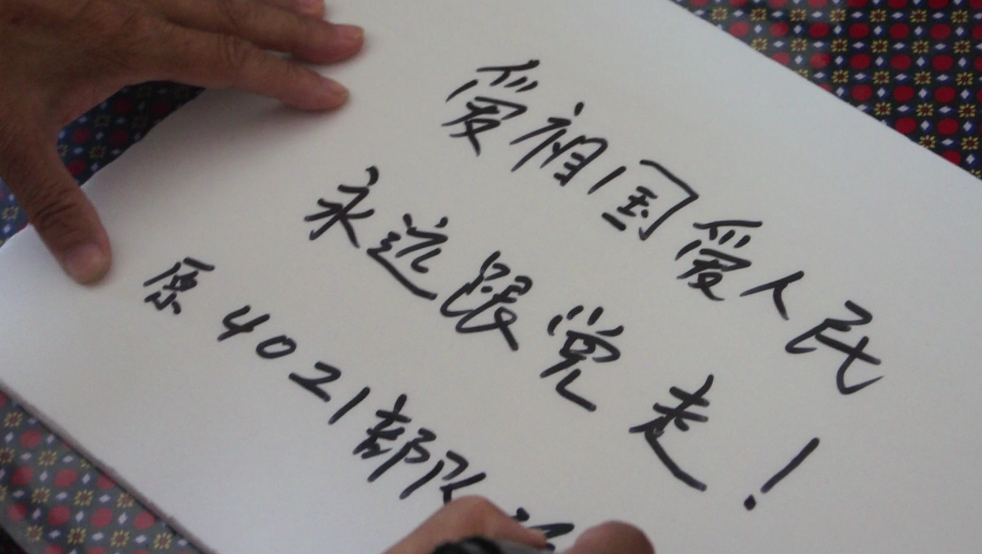 爱祖国爱人民
永远跟党走!
原4021部队